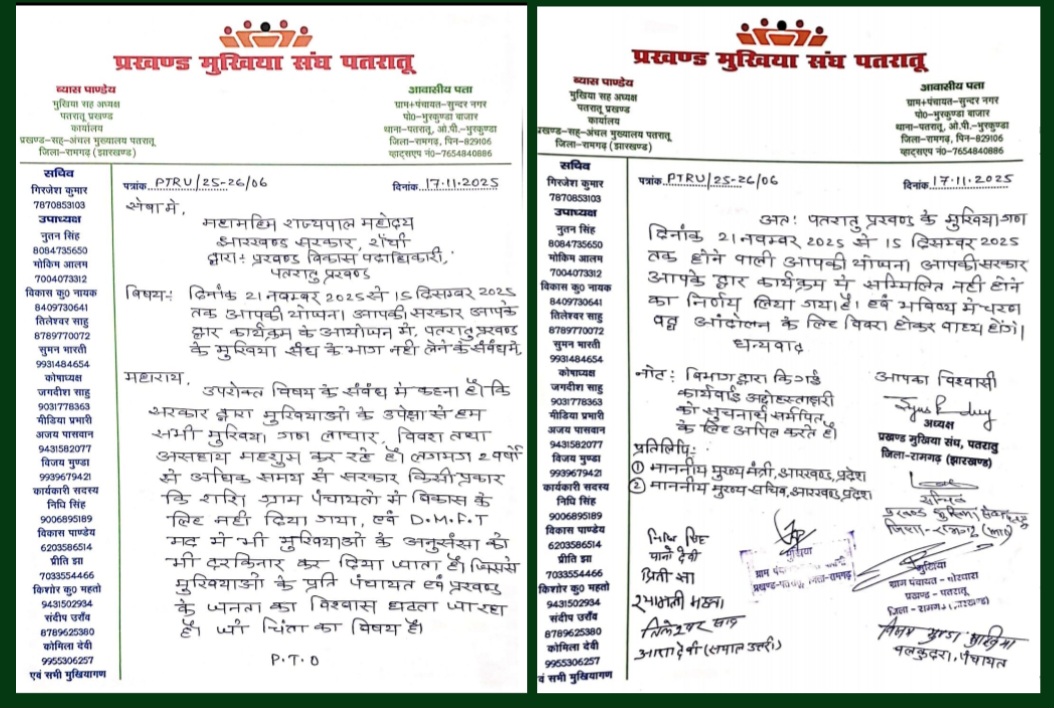 प्रखण्ड मुखिया संघ पतरातू
ब्यास पाण्डेय
मुखिया सह अध्यक्ष
पतरातू प्रखण्ड
कार्यालय
प्रखण्ड-सह-अंचल मुख्यालय पतरातू
जिला-रामगढ़ (झारखण्ड)
आवासीय पता
ग्राम+पंचायत-सुन्दर नगर
पो०-भुरकुण्डा बाजार
थाना-पतरातू, ओ.पी.-भुरकुण्डा
जिला-रामगढ़, पिन-829106
व्हाट्सएप नं०-7654840886
सचिव
गिरजेश कुमार
7870853103
उपाध्यक्ष
नुतन सिंह
8084735650
मोकिम आलम
7004073312
विकास कु० नायक
8409730641
तिलेश्वर साहु
8789770072
सुमन भारती
9931484654
कोषाध्यक्ष
जगदीश साहु
9031778363
मीडिया प्रभारी
अजय पासवान
9431582077
विजय मुण्डा
9939679421
कार्यकारी सदस्य
निधि सिंह
9006895189
विकास पाण्डेय
6203586514
प्रीति झा
7033554466
किशोर कु० महतो
9431502934
संदीप उराँव
8789625380
कोमिला देवी
9955306257
एवं सभी मुखियागण
पत्रांक PTRU/25-26/06
दिनांक 17.11.2025
सेवा मे,
महामहिम राज्यपाल महोदय
झारखण्ड सरकार, राँची
द्वारा:- प्रखण्ड विकास पदाधिकारी,
पतरातु प्रखण्ड
विषय:- दिनांक 21 नवम्बर 2025 से 15 दिसम्बर 2025
तक आपकी योजना आपकी सरकार आपके
द्वार कार्यक्रम के आयोजन में, पतरातु प्रखण्ड
के मुखिया संघ के भाग नही लेने के संबंध मे,
महाशय,
उपरोक्त विषय के संबंध मे कहना है। कि
सरकार द्वारा मुखियाओं के उपेक्षा से हम
सभी मुखिया गण लाचार, विवश तथा
असहाय महशुस कर रहे है। लगभग 2 वर्षो
से अधिक समय से सरकार किसी प्रकार
कि राशि ग्राम पंचायतों मे विकास के
लिए नही दिया गया, एवं D.M.F.T
मद मे भी मुखियाओं के अनुसंसा को
भी दरकिनार कर दिया जाता है। जिससे
मुखियाओं के प्रति पंचायत एवं प्रखण्ड
के जनता का विश्वास घटता जा रहा
है। जो चिंता का विषय है।
P.T.O
प्रखण्ड मुखिया संघ पतरातू
ब्यास पाण्डेय
मुखिया सह अध्यक्ष
पतरातू प्रखण्ड
कार्यालय
प्रखण्ड-सह-अंचल मुख्यालय पतरातू
जिला-रामगढ़ (झारखण्ड)
आवासीय पता
ग्राम+पंचायत-सुन्दर नगर
पो०-भुरकुण्डा बाजार
थाना-पतरातू, ओ.पी.-भुरकुण्डा
जिला-रामगढ़, पिन-829106
व्हाट्सएप नं०-7654840886
सचिव
गिरजेश कुमार
7870853103
उपाध्यक्ष
नुतन सिंह
8084735650
मोकिम आलम
7004073312
विकास कु० नायक
8409730641
तिलेश्वर साहु
8789770072
सुमन भारती
9931484654
कोषाध्यक्ष
जगदीश साहु
9031778363
मीडिया प्रभारी
अजय पासवान
9431582077
विजय मुण्डा
9939679421
कार्यकारी सदस्य
निधि सिंह
9006895189
विकास पाण्डेय
6203586514
प्रीति झा
7033554466
किशोर कु० महतो
9431502934
संदीप उराँव
8789625380
कोमिला देवी
9955306257
एवं सभी मुखियागण
पत्रांक PTRU/25-26/06
दिनांक 17.11.2025
अत: पतरातु प्रखण्ड के मुखिया गण
दिनांक 21 नवम्बर 2025 से 15 दिसम्बर 2025
तक होने वाली आपकी योजना आपकी सरकार
आपके द्वार कार्यक्रम मे सम्मिलित नही होने
का निर्णय लिया गया है। एवं भविष्य मे चरण
वद्ध आंदोलन के लिए विवश होकर वाध्य होंगे।
धन्यवाद
नोट: विभाग द्वारा कि गई
कार्यवाई अद्योहस्ताक्षरी
को सुचनार्थ समर्पित
के लिए अपिल करते है।
आपका विश्वासी
अध्यक्ष
प्रखण्ड मुखिया संघ, पतरातु
जिला-रामगढ़ (झारखण्ड)
प्रतिलिपि:
① माननीय मुख्य मंत्री, झारखण्ड, प्रदेश
② माननीय मुख्य सचिव, झारखण्ड, प्रदेश
सचिव
निधि सिंह
पानो देवी
प्रिती झा
तिलेश्वर साहु
मुखिया
मुखिया
ग्राम पंचायत - पोरपारा
प्रखण्ड - पतरातू
जिला - रामगढ़ (झारखण्ड)
विजय मुण्डा मुखिया
पंचायत